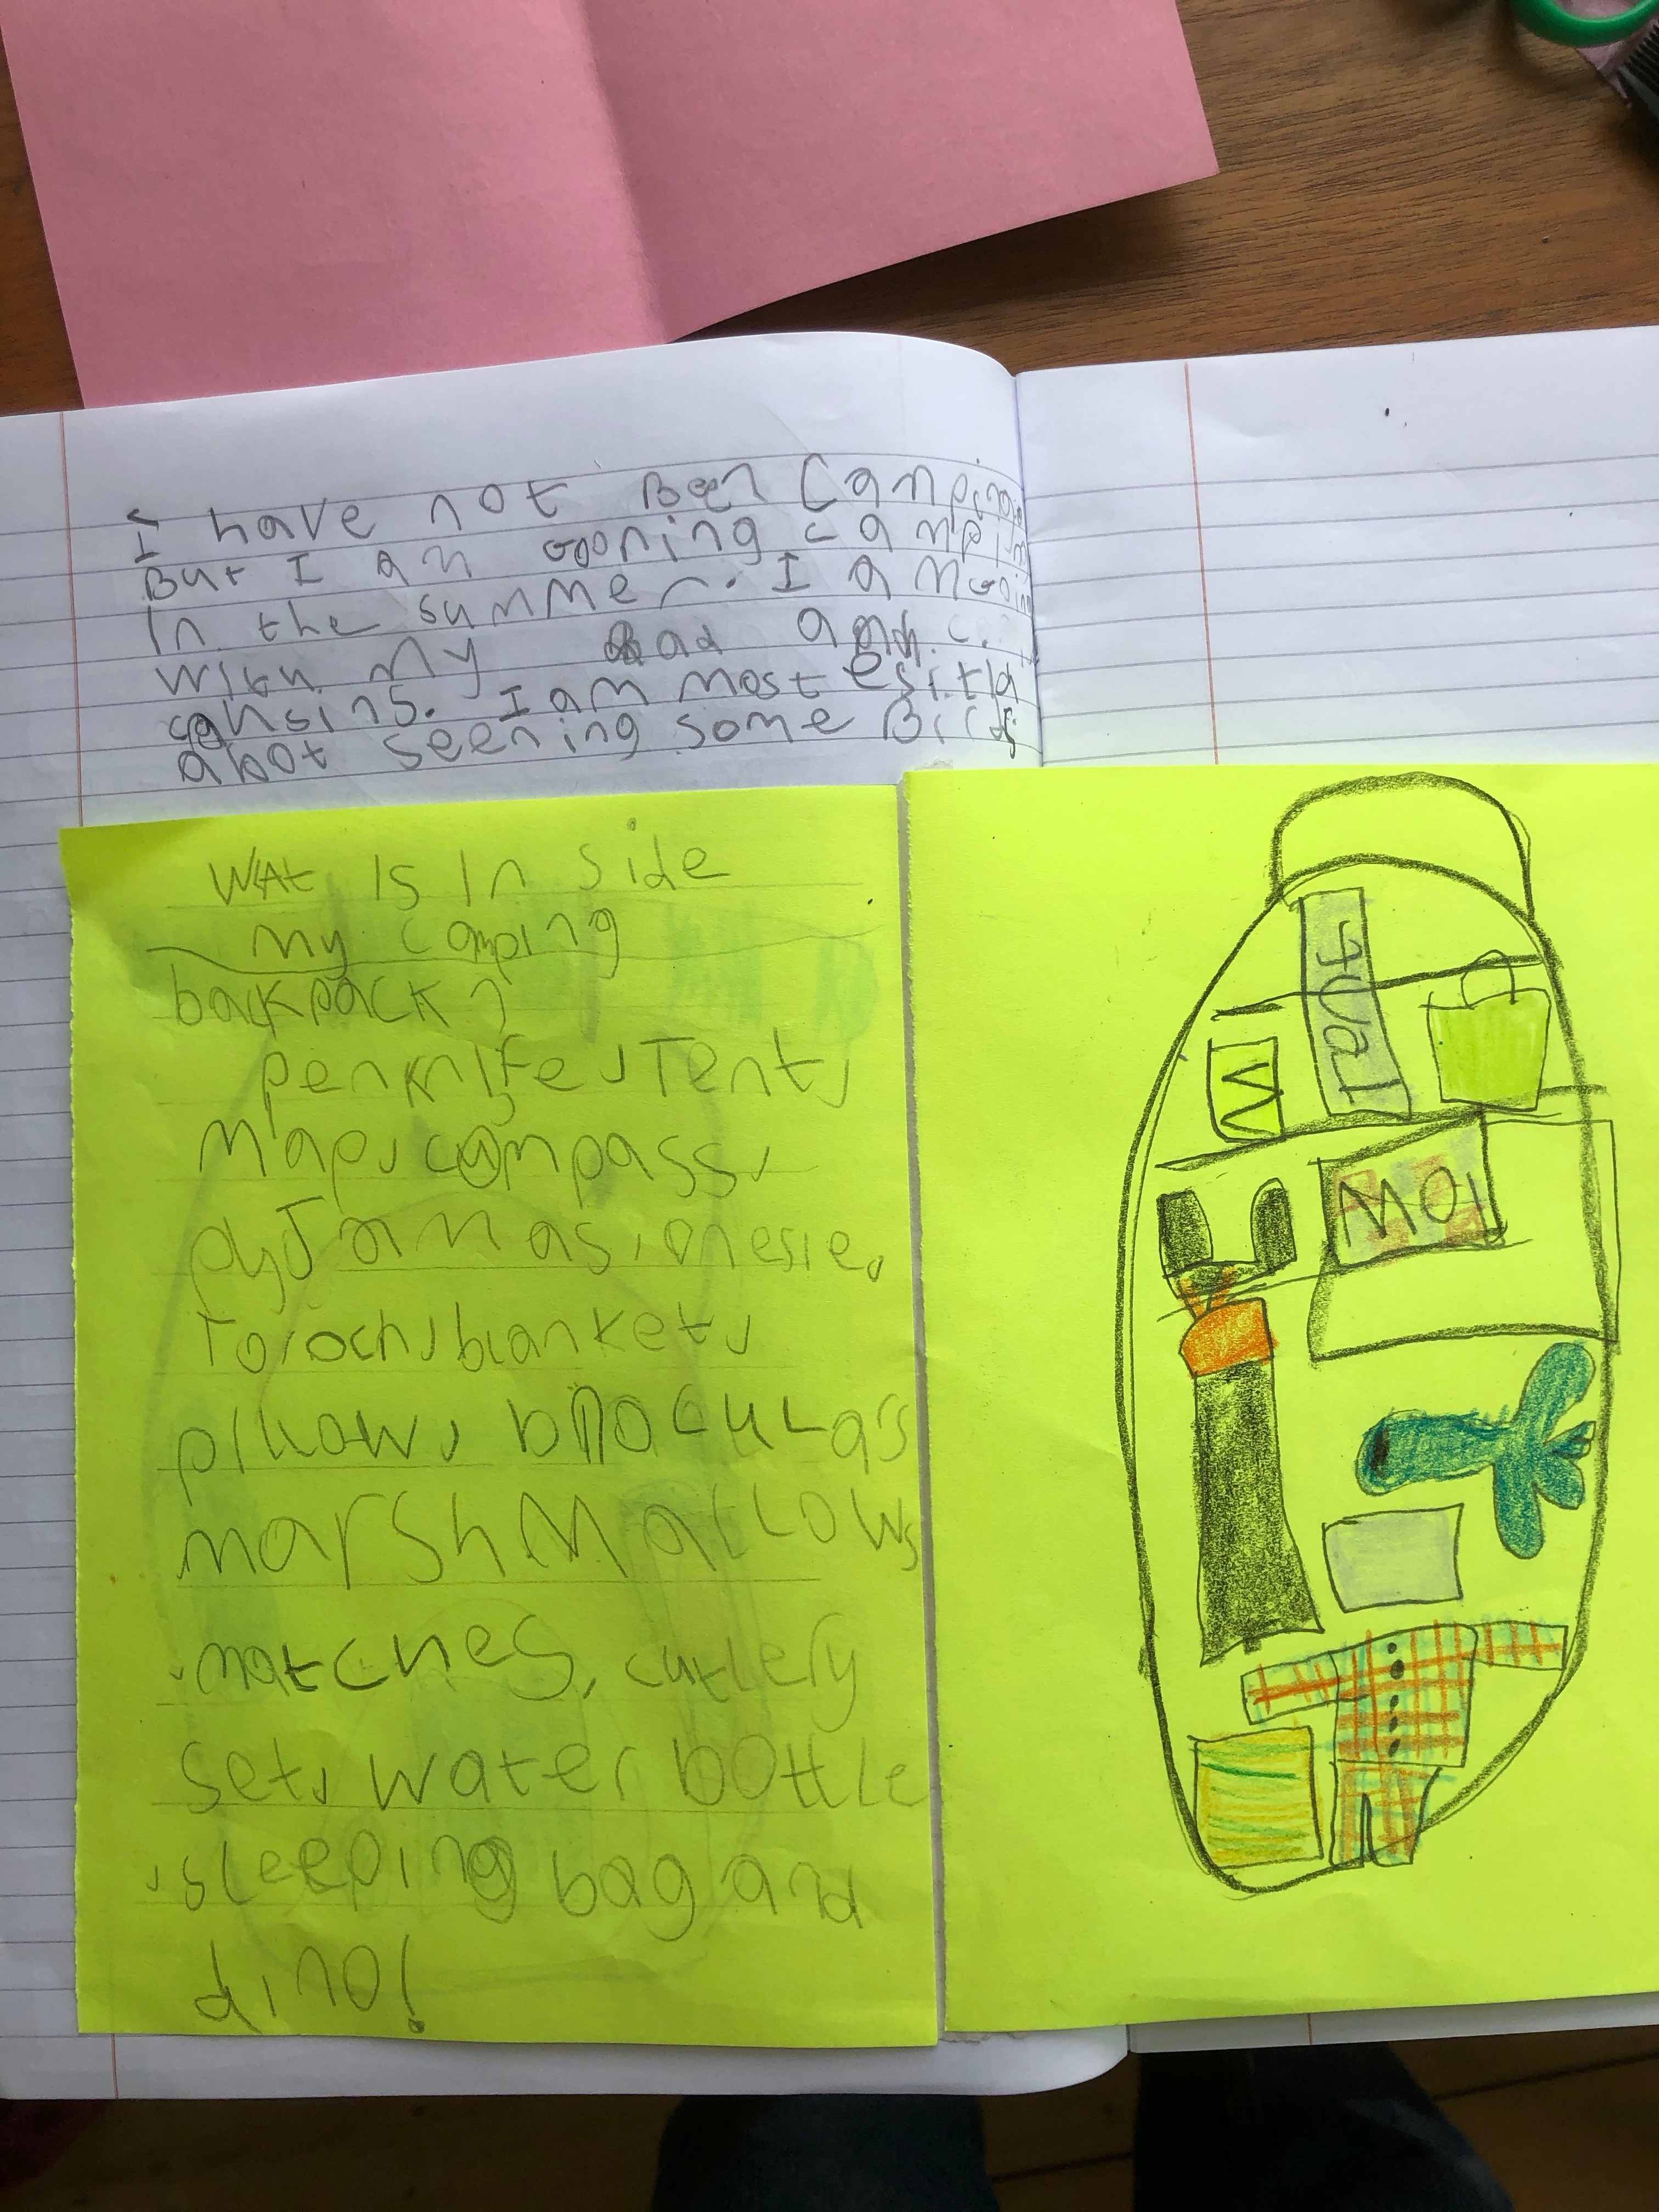 I have not Been Camping
But I am gooning camping
In the summer. I am
with my Dad and
cousins. I am most esitid
abot seening some Birds
WhAt Is In Side
my camping
backpack?
penknife, Tent,
Map, compass,
pyJamas, onesie,
Toroch, blanket,
pillow, binoculars
marshmallows
, matches, cutlery
set, water bottle
, sleeping bag and
dino!